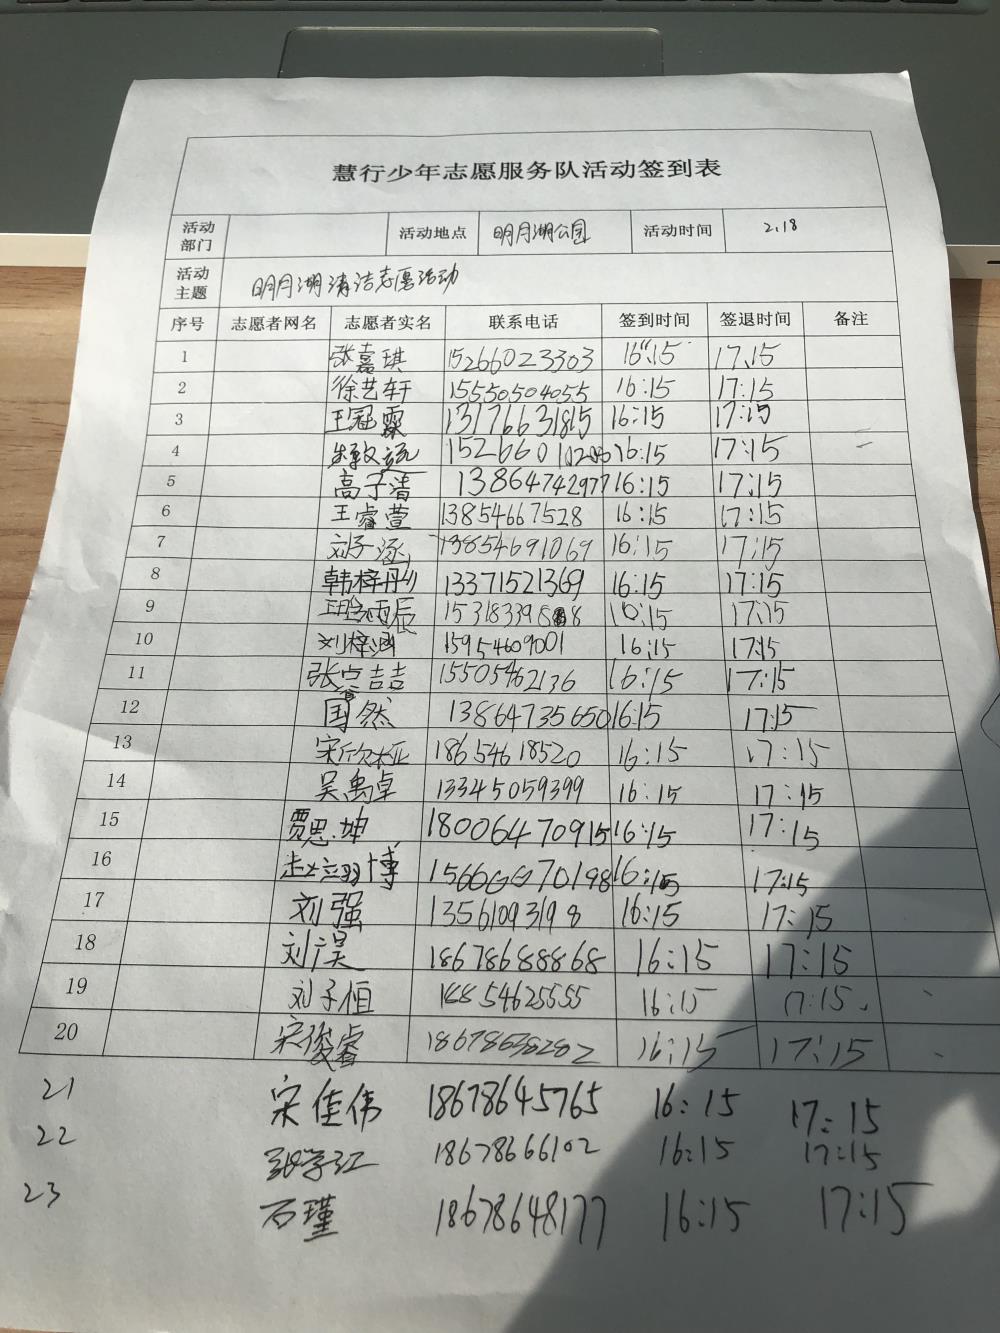 慧行少年志愿服务队活动签到表
活动部门 活动地点 明月湖公园 活动时间 2.18
活动主题 明月湖清洁志愿活动
序号 志愿者网名 志愿者实名 联系电话 签到时间 签退时间 备注
1 张嘉琪 15266023303 16:15 17:15
2 徐艺轩 15550504055 16:15 17:15
3 王冠霖 13176631815 16:15 17:15
4 16:15 17:15
5 高子清 13864742977 16:15 17:15
6 王睿萱 13854667528 16:15 17:15
7 刘子涵 13854691069 16:15 17:15
8 韩梓彤 13371521369 16:15 17:15
9 16:15 17:15
10 刘梓涵 15954609001 16:15 17:15
11 15505462136 16:15 17:15
12 国然 13864735650 16:15 17:15
13 18654618520 16:15 17:15
14 吴禹卓 13345059399 16:15 17:15
15 贾思坤 18006470915 16:15 17:15
16 赵羽博 15666070198 16:15 17:15
17 刘强 13561093198 16:15 17:15
18 刘昊 18678688868 16:15 17:15
19 刘子恒 16:15 17:15
20 宋俊睿 16:15 17:15
21 宋佳伟 18678645765 16:15 17:15
22 张学江 18678666102 16:15 17:15
23 石瑾 18678648177 16:15 17:15